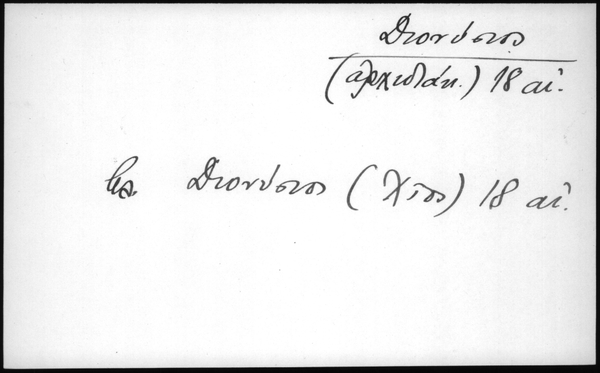 Διονύσιος
(αρχιδιάκ.) 18 αἰ.
βλ. Διονύσιος (Χῖος) 18 αἰ.